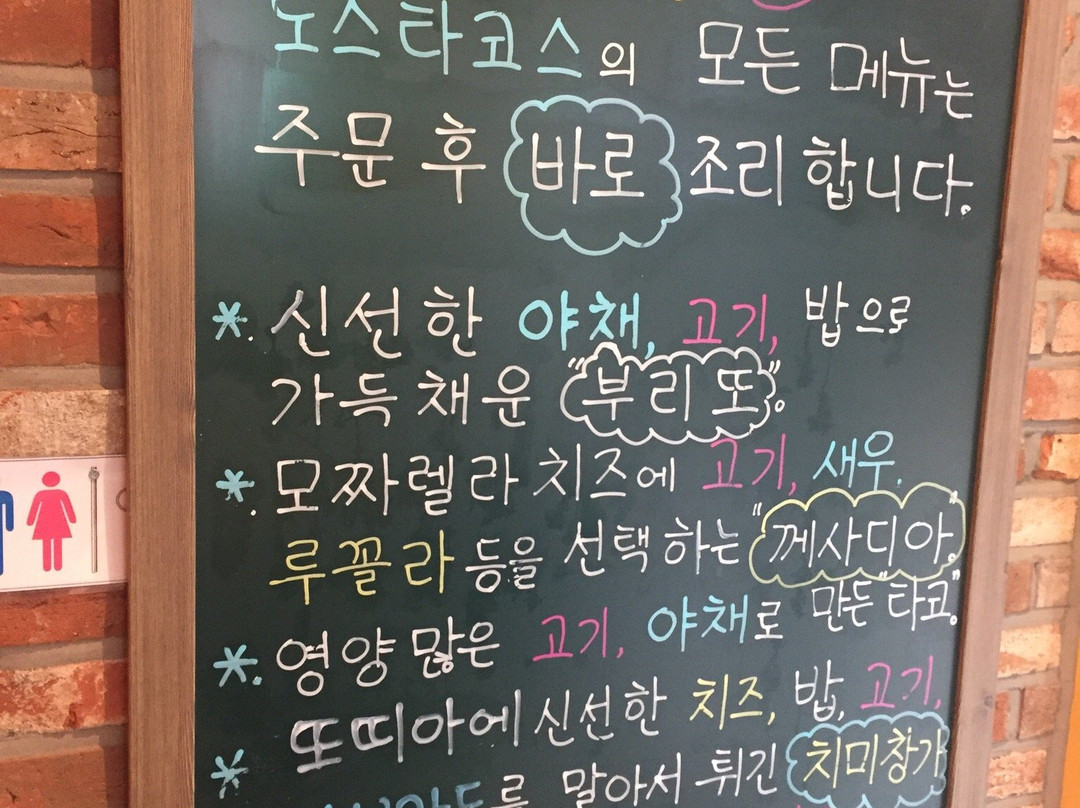 노스타코스의 모든 메뉴는
주문 후 바로 조리합니다.
*. 신선한 야채, 고기, 밥으로
가득 채운 "부리또".
*. 모짜렐라 치즈에 고기, 새우.
루꼴라 등을 선택하는 "께사디아".
*. 영양 많은 고기, 야채로 만든 "타코".
*. 또띠아에 신선한 치즈, 밥, 고기,
를 말아서 튀긴 치미창가